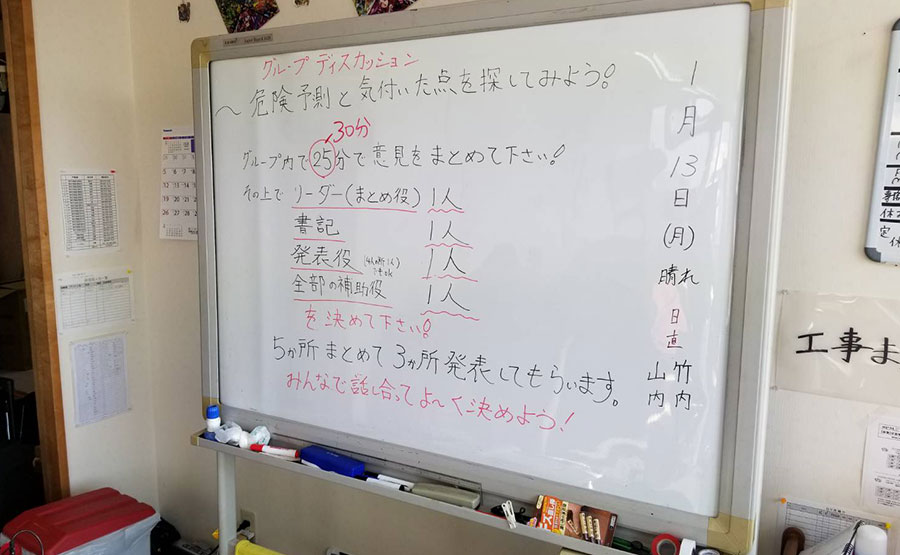 グループ ディスカッション
～ 危険予測と気付いた点を探してみよう!
30分
グループ内で25分で意見をまとめて下さい!
その上で リーダー(まとめ役) 1人
書記 1人
発表役 1人
全部の補助役 1人
を決めて下さい!
5か所 まとめて 3ヵ所 発表してもらいます。
みんなで話し合ってよ〜く決めよう!
1
月
13
日
(月)
晴れ
日
直
竹内
山内
工事ま